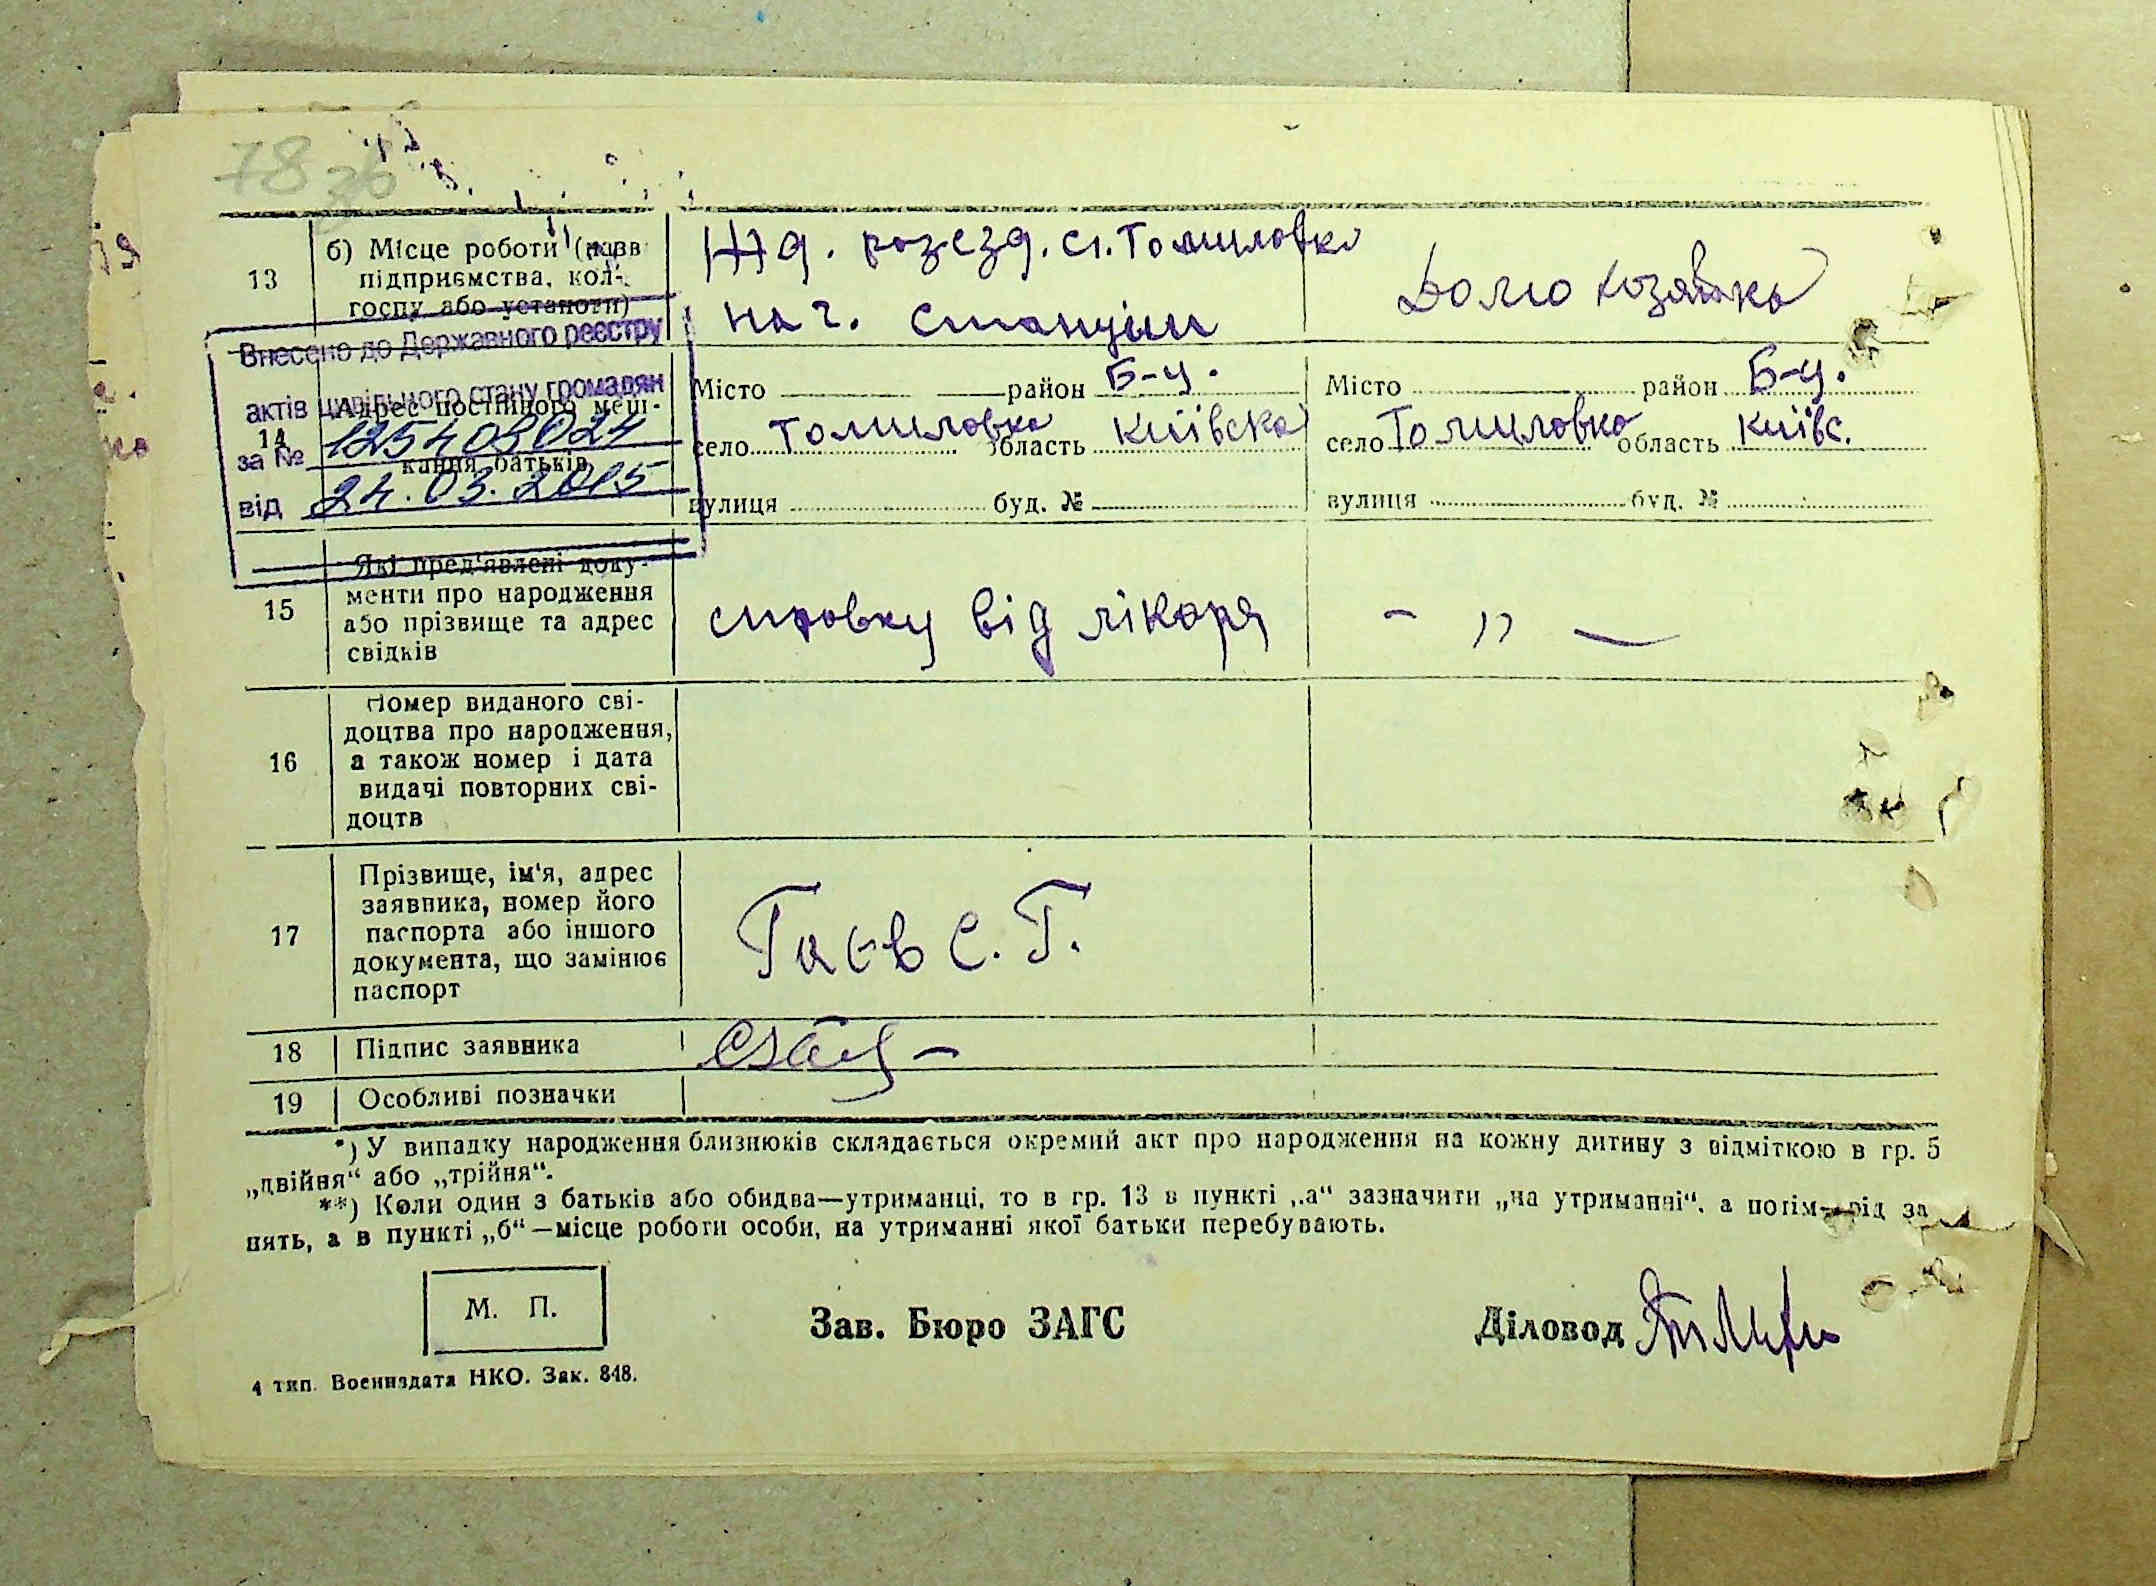 78 зв
13
б) Місце роботи (назв
підприємства, кол-
госпу або установи)
Жд. розєзд. ст. Томиловка
нач. станціи
Домохозяйка
Внесено до Державного реєстру
актів цивільного стану громадян
за № 125403024
від 24.03.2015
14
Адрес постійного меш-
кання батьків
Місто район Б-Ц.
село Томиловка область Київска
вулиця буд. №
Місто район Б-Ц.
село Томиловка область Київс.
вулиця буд. №
15
Які пред'явлені доку-
менти про народження
або прізвище та адрес
свідків
справку від лікаря
- " -
16
Номер виданого сві-
доцтва про народження,
а також номер і дата
видачі повторних сві-
доцтв
17
Прізвище, ім'я, адрес
заявника, номер його
паспорта або іншого
документа, що замінює
паспорт
Гаєв С. Г.
18 Підпис заявника
19 Особливі позначки
*) У випадку народження близнюків складається окремий акт про народження на кожну дитину з відміткою в гр. 5
„двійня“ або „трійня“.
**) Коли один з батьків або обидва—утриманці, то в гр. 13 в пункті „а“ зазначити „на утриманні“, а потім—рід за
нять, а в пункті „б“—місце роботи особи, на утриманні якої батьки перебувають.
М. П.
Зав. Бюро ЗАГС
Діловод
4 тип. Воениздата НКО. Зак. 848.